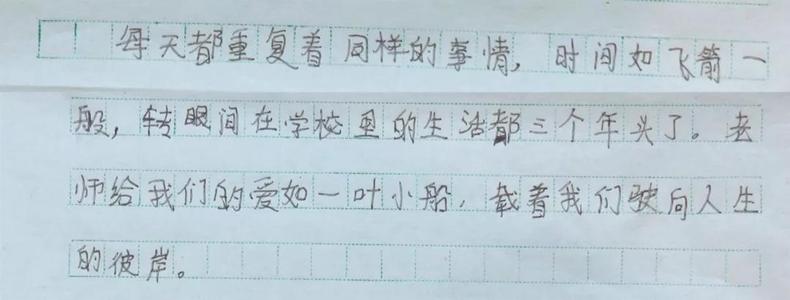 每天都重复着同样的事情，时间如飞箭一
般，转眼间在学校里的生活都三个年头了。老
师给我们的爱如一叶小船，载着我们驶向人生
的彼岸。